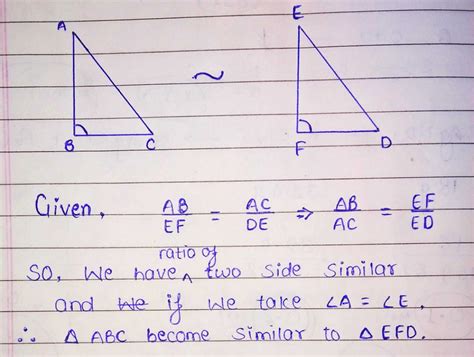 A E
~
B C F D
Given, AB/EF = AC/DE ⇒ AB/AC = EF/ED
ratio of
So, We have ^ two side similar
and We if we take ∠A = ∠E.
∴ Δ ABC become similar to Δ EFD.